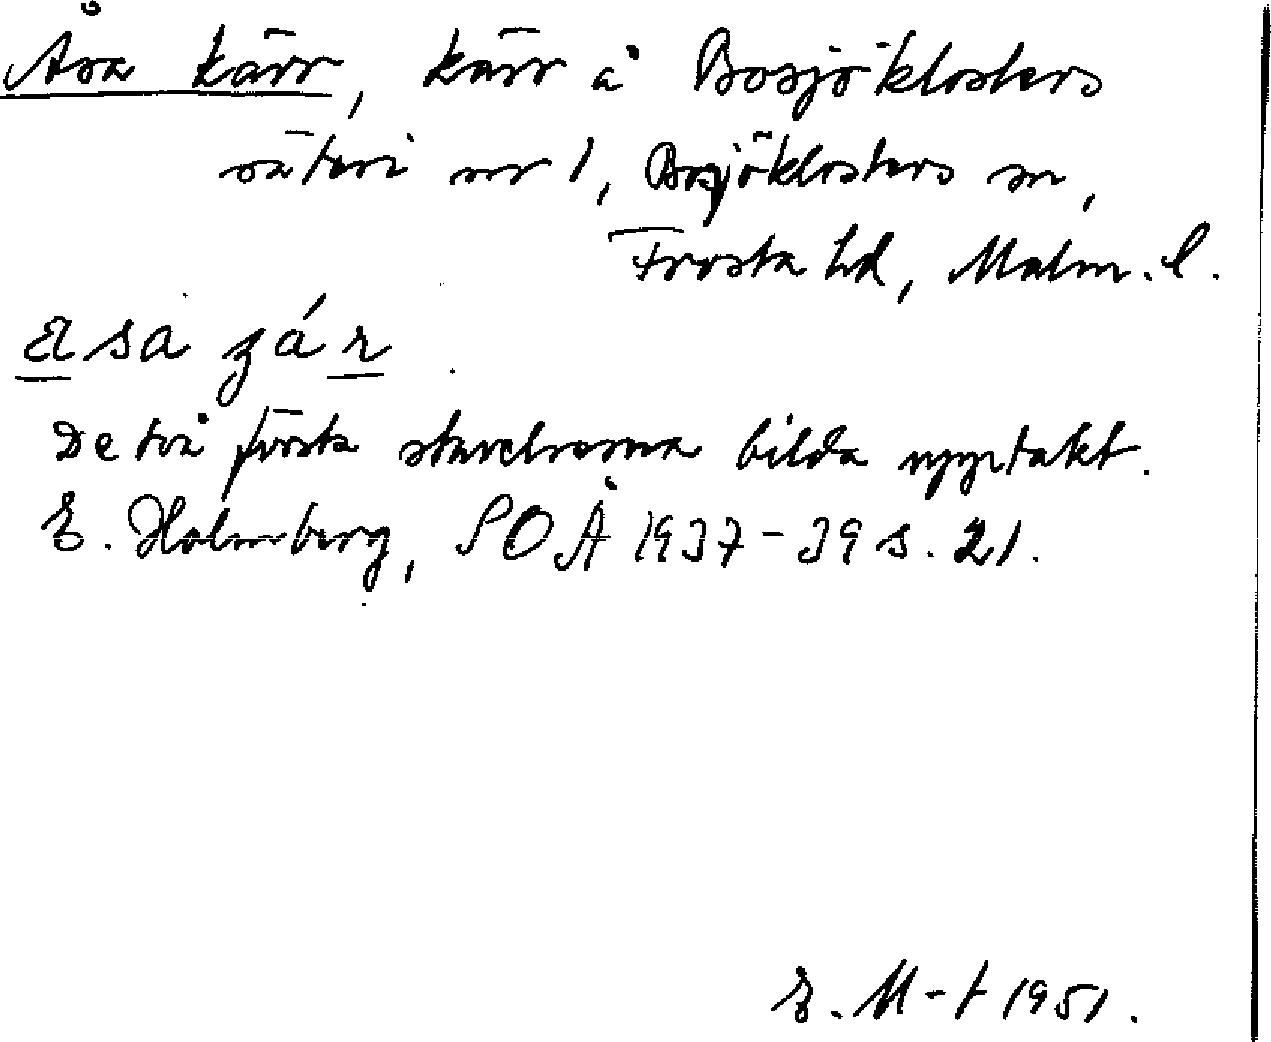 Åsa kärr, kärr å Bosjöklosters
säteri nr 1, Bosjöklosters sn,
Frosta hd, Malm. l.
sa
De två första stavelserna bilda upptakt.
E. Holmberg, SOÅ 1937-39 s. 21.
E. M-t 1951.